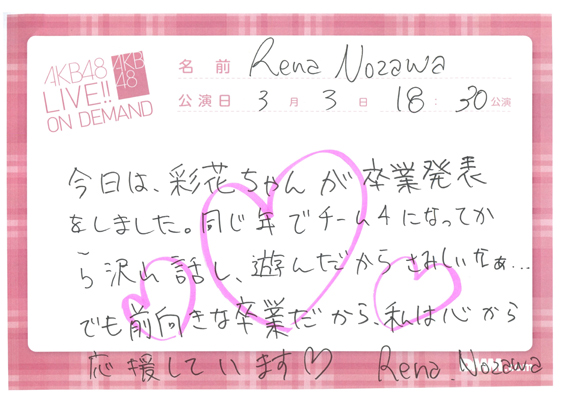 AKB48
LIVE!!
ON DEMAND
AKB
48
名 前 Rena Nozawa
公演日 3 月 3 日 18 : 30 公演
今日は、彩花ちゃんが卒業発表
をしました。同じ年でチーム4になってか
ら沢山話し、遊んだからさみしいなぁ...
でも前向きな卒業だから、私は心から
応援しています♡ Rena Nozawa